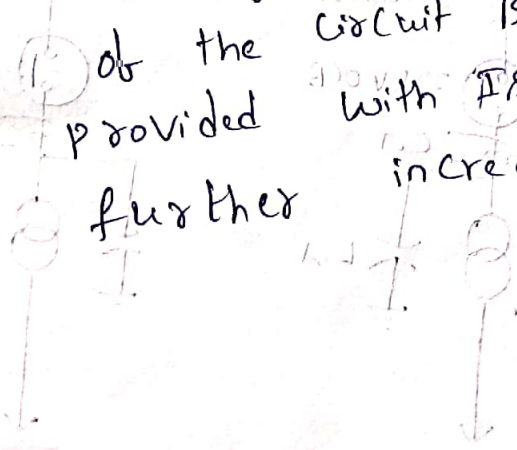 of the circuit is
provided with
further incre